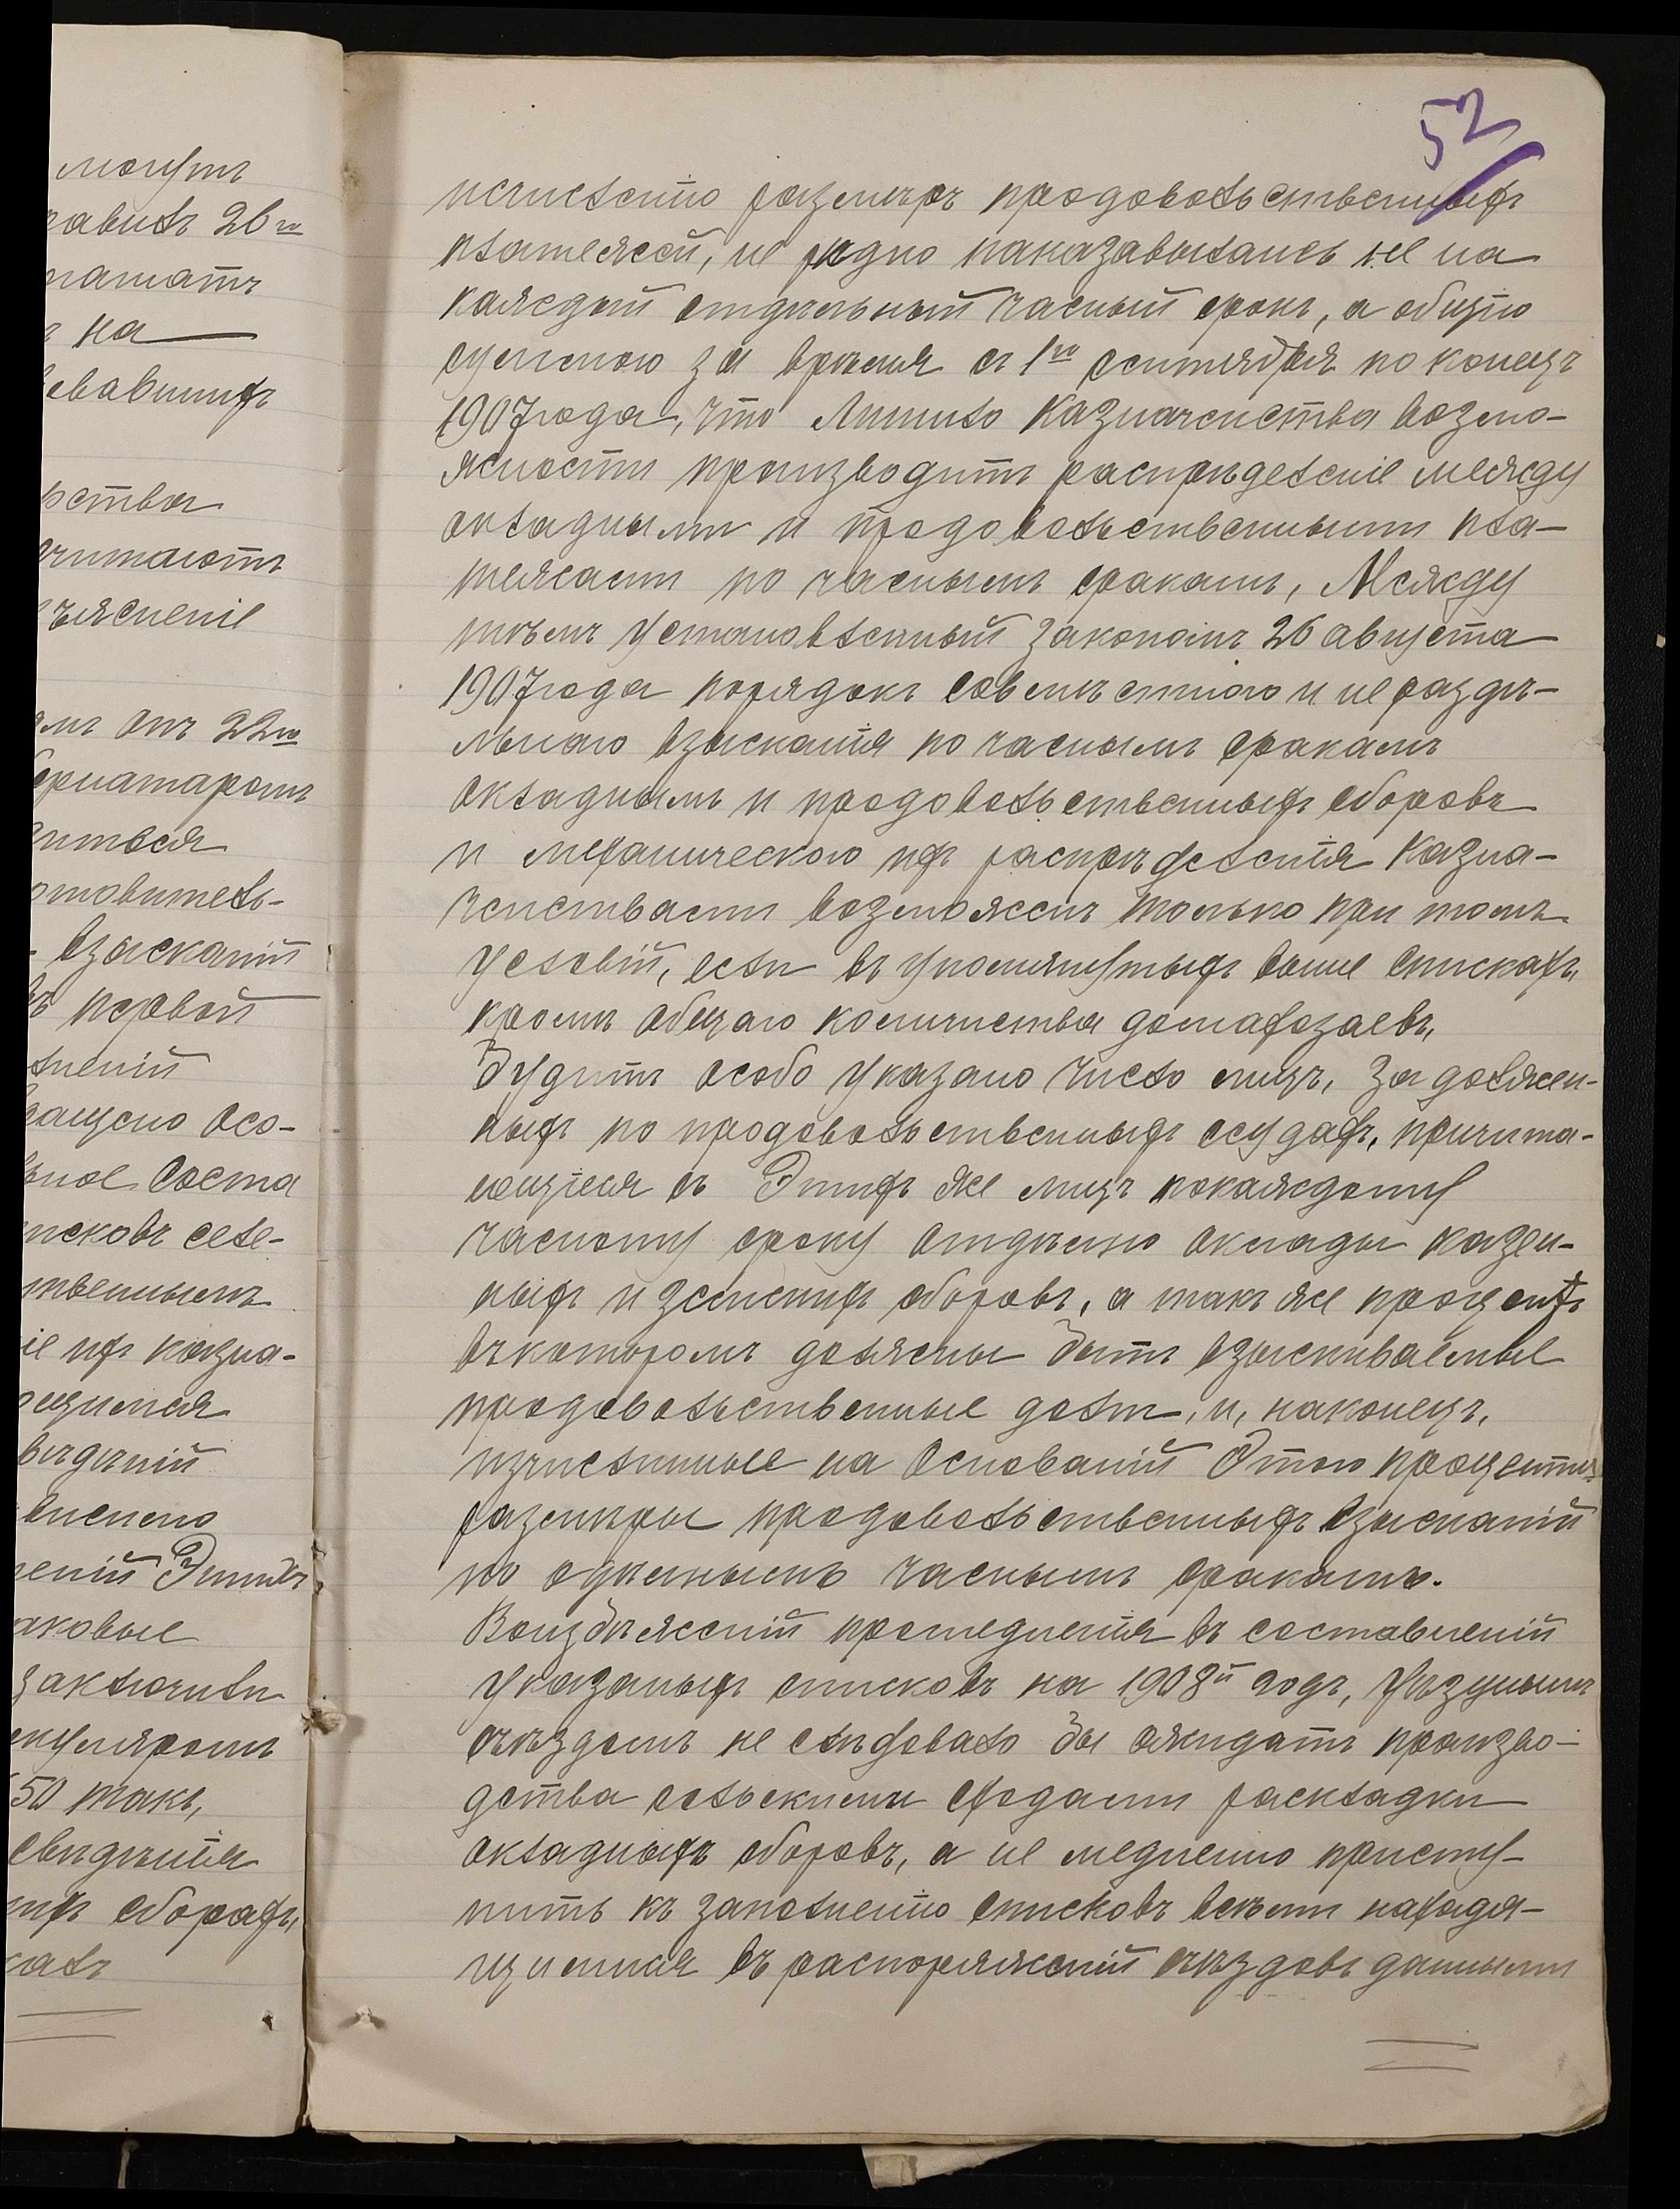 могутъ
равилъ 26го
латамъ
ъ на
левавшихъ
рства
очитаютъ
ъясненіе
омъ отъ 22го
бернаторомъ
диться
отовитель-
взысканій
въ первой
лненій
пащено осо-
ьное соста
писковъ селе-
твеннымъ
іе ихъ казна-
ющимся
вѣдѣній
внесено
неній этихъ
аковые
заключили
ркуляромъ
50 такъ,
свидѣнія
ихъ сборахъ,
калъ
52
исчисленію размѣръ продовольственныхъ
платежей, не рѣдко паказавылались не на
каждый отдѣльный часный срокъ, а общею
суммою за время съ 1го сентября по конецъ
1907 года, что лишило Казначейства возмо-
жности производить распредѣленіе между
окладными и продовольственными пла-
тежами по часнымъ срокамъ, Между
тѣмъ установленный закономъ 26 августа
1907 года порядокъ совмѣстного и не раздѣ-
льнаго взысканія по часнымъ срокамъ
окладнымъ и продовольственныхъ сборовъ
и механического ихъ распредѣленія Казна-
чействами возможенъ только при томъ
условій, если въ упомянутыхъ выше спискахъ
кромѣ общаго количества домахозаевъ,
будитъ особо указано число лицъ, задолжен-
ныхъ по продовольственныхъ ссудахъ, причита-
ющіеся съ этихъ же лицъ покаждому
часному сроку отдѣльно оклады казен-
ныхъ и земскихъ сборовъ, а такъ же процентъ
въкоторомъ должны быть взыскиваемые
продовольственные долги, и, наконецъ,
изчисленные на основаній этого процента
размѣры продовольственныхъ взысканій
по одѣльнымъ часнымъ срокамъ.
Воизбѣжаній промедленія въ составленій
указаныхъ списковъ на 1908й годъ, уѣзднымъ
съѣздомъ не слѣдовало бы ожидать произво-
дства сельскими сходами раскладки
окладныхъ сборовъ, а не медленно присту-
пить къ заполненію списковъ всѣми находя-
щимися въ распоряженій съѣздовъ данными